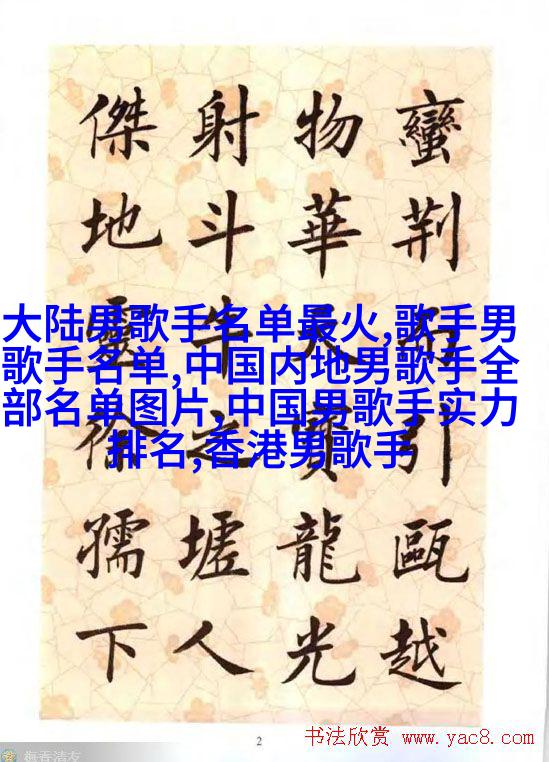 蠻荆而引甌越
物華天寶龍光
射斗牛之墟人
傑地靈徐孺下
大陆男歌手名单最火,歌手男
歌手名单,中国内地男歌手全
部名单图片,中国男歌手实力
排名,香港男歌手
2
书法欣赏 www.yac8.com